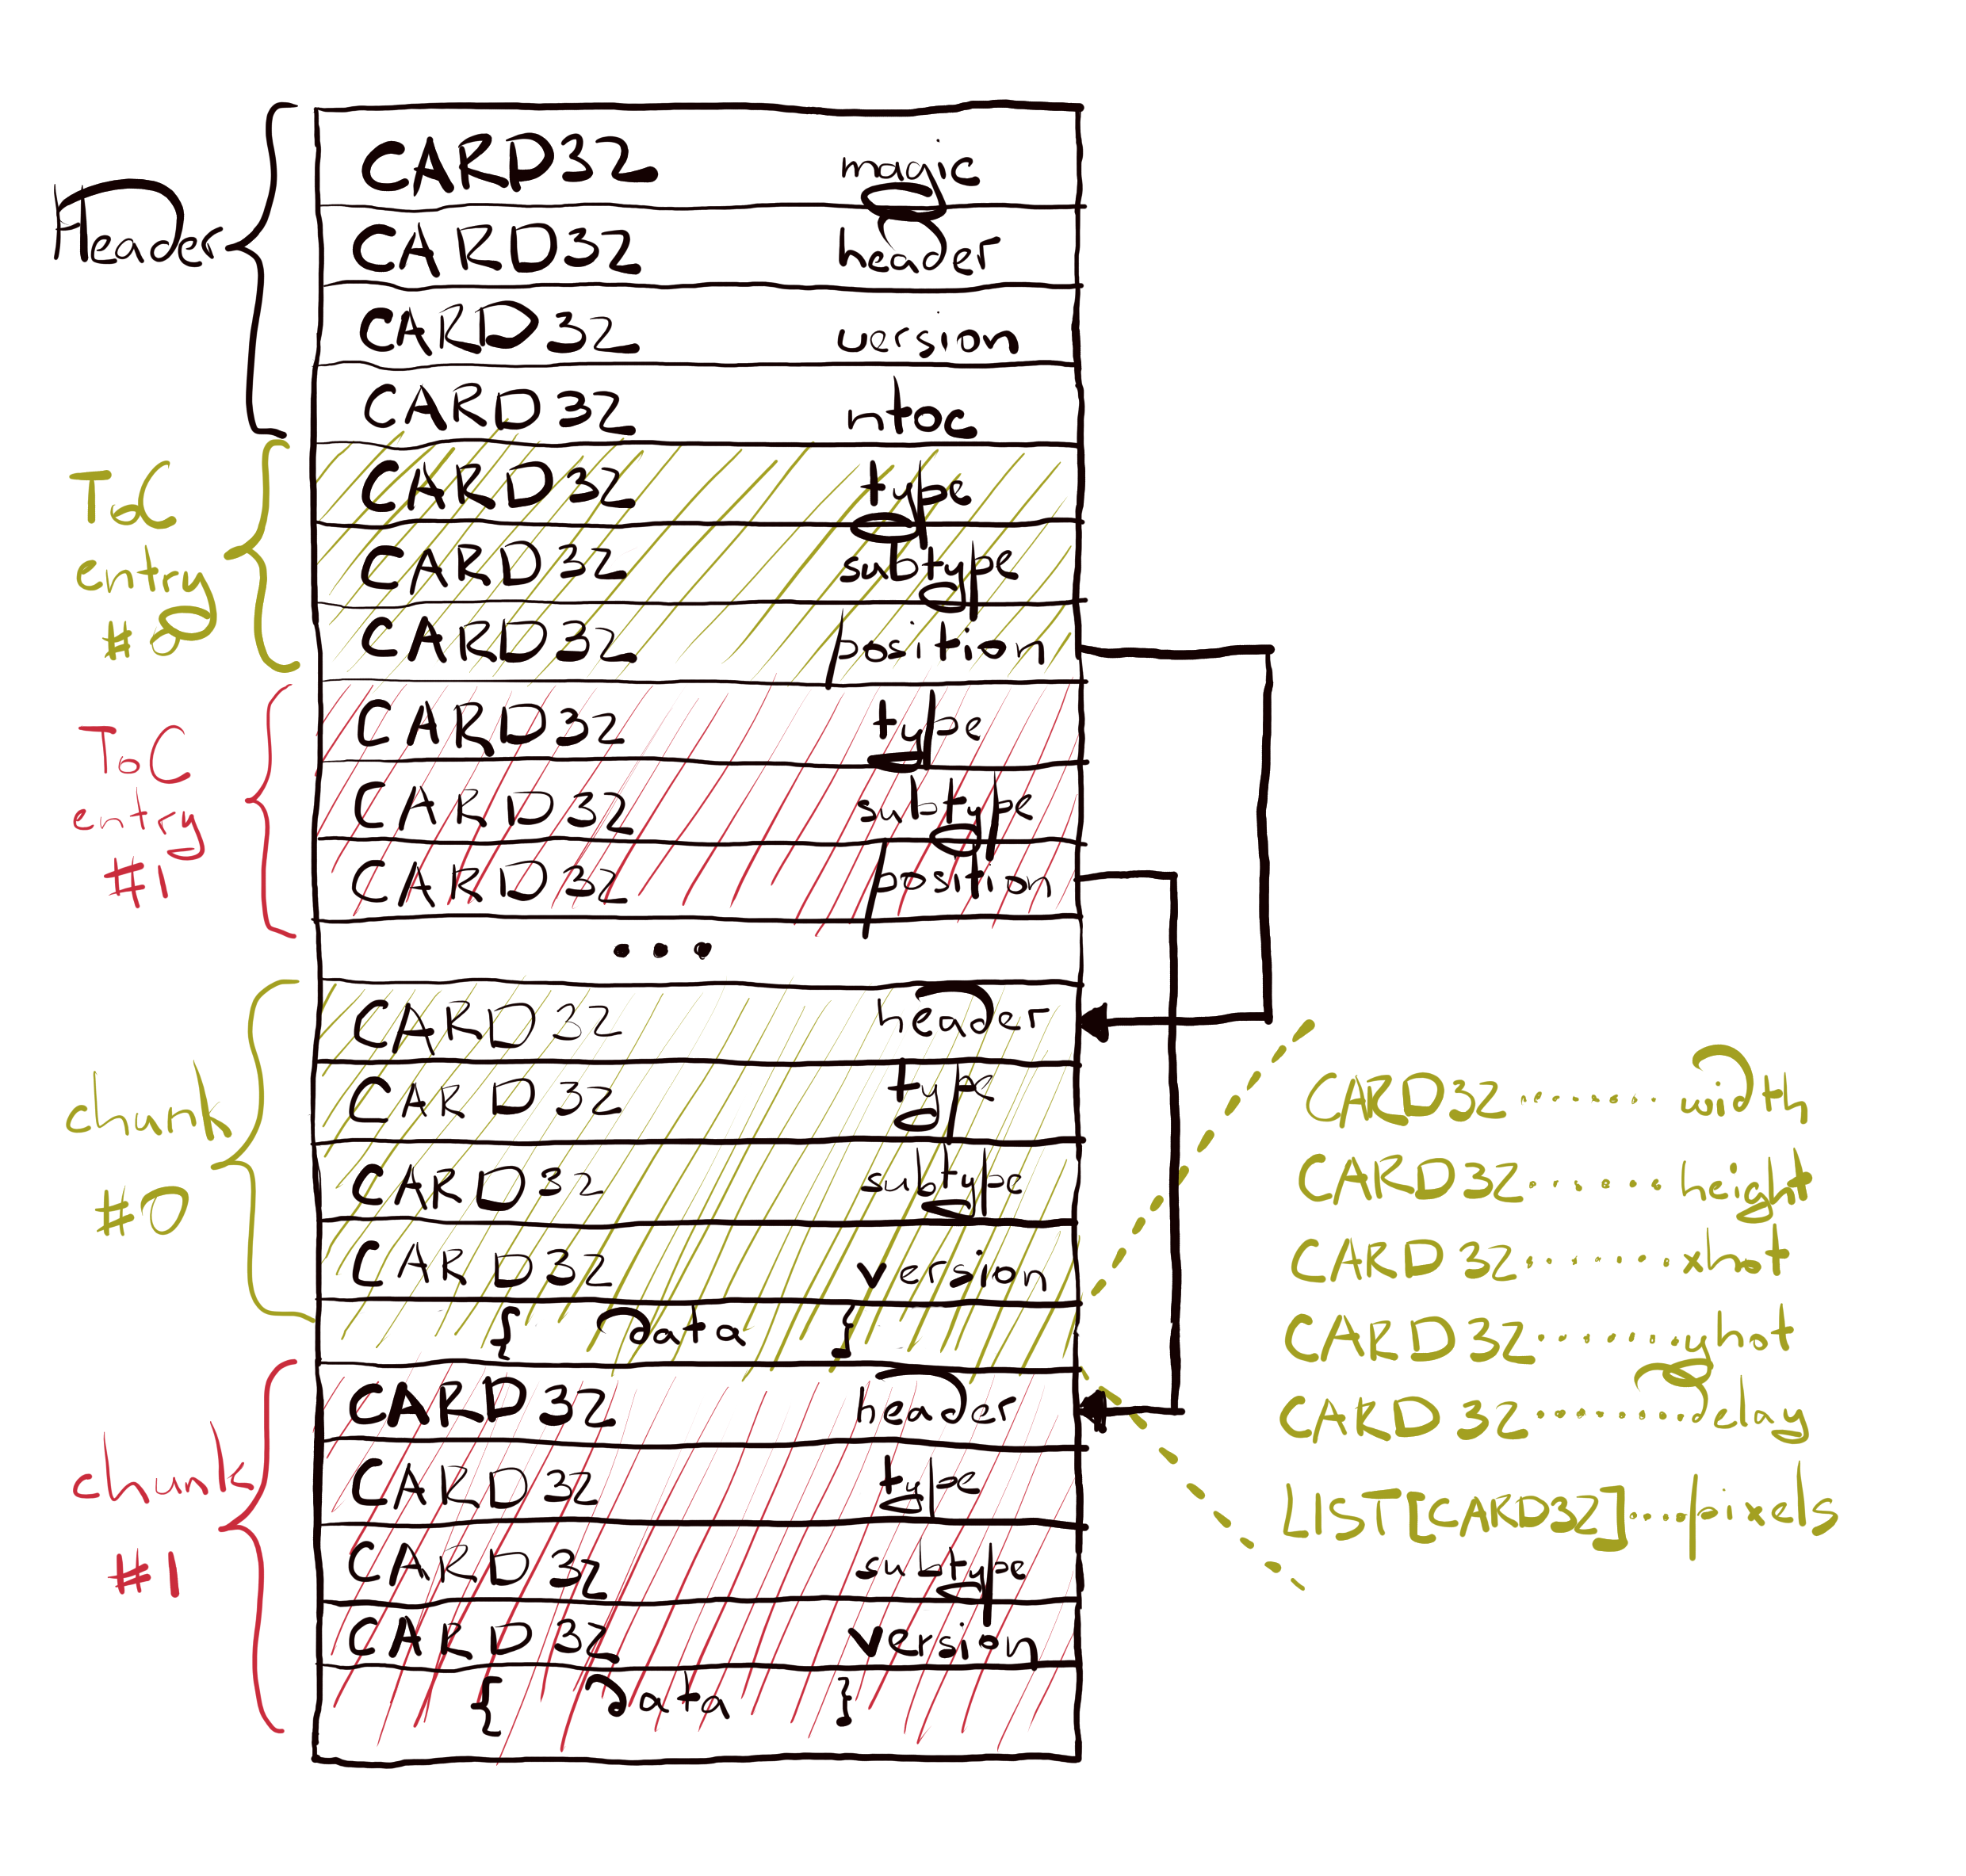 Header
CARD32 magic
CARD32 header
CARD32 version
CARD32 ntoc
ToC
entry
#0
CARD32 type
CARD32 subtype
CARD32 position
ToC
entry
#1
CARD32 type
CARD32 subtype
CARD32 position
...
chunk
#0
CARD32 header
CARD32 type
CARD32 subtype
CARD32 version
{ data }
CARD32 ......... width
CARD32 ....... height
CARD32 ......... xhot
CARD32 ......... yhot
CARD32 ......... delay
LIST[CARD32] .... pixels
chunk
#1
CARD32 header
CARD32 type
CARD32 subtype
CARD32 version
{ data }